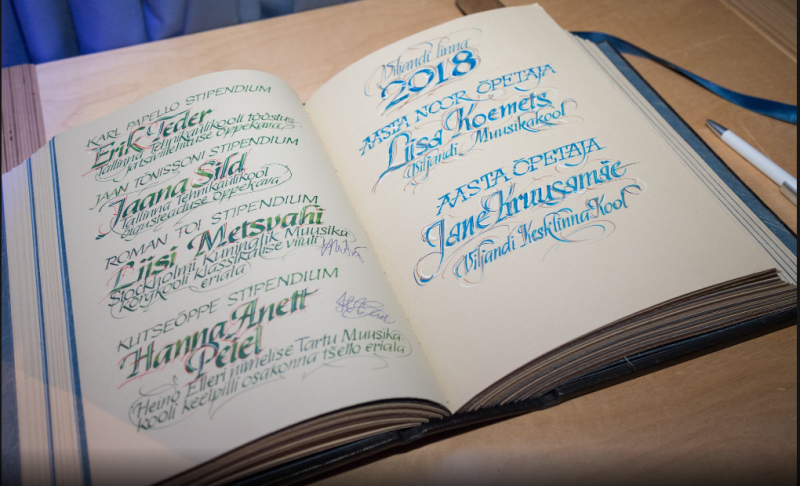 KARL PAPELLO STIPENDIUM
Erik Teder
Tallinna Tehnikaülikooli tööstus-
ja tsiviilehituse õppekava
JAAN TÕNISSONI STIPENDIUM
Jaana Sild
Tallinna Tehnikaülikool
õigusteaduse õppekava
ROMAN TOI STIPENDIUM
Liisi Metsvahi
Stockholmi Kuninglik Muusika-
kõrgkooli klassikalise viiuli
eriala
KUTSEÕPPE STIPENDIUM
Hanna Anett
Peiel
Heino Elleri nimelise Tartu Muusika-
kooli keelpilli osakonna tšello eriala
Viljandi linna
2018
AASTA NOOR ÕPETAJA
Liisi Koemets
Viljandi Muusikakool
AASTA ÕPETAJA
Jane Kruusamäe
Viljandi Kesklinna Kool